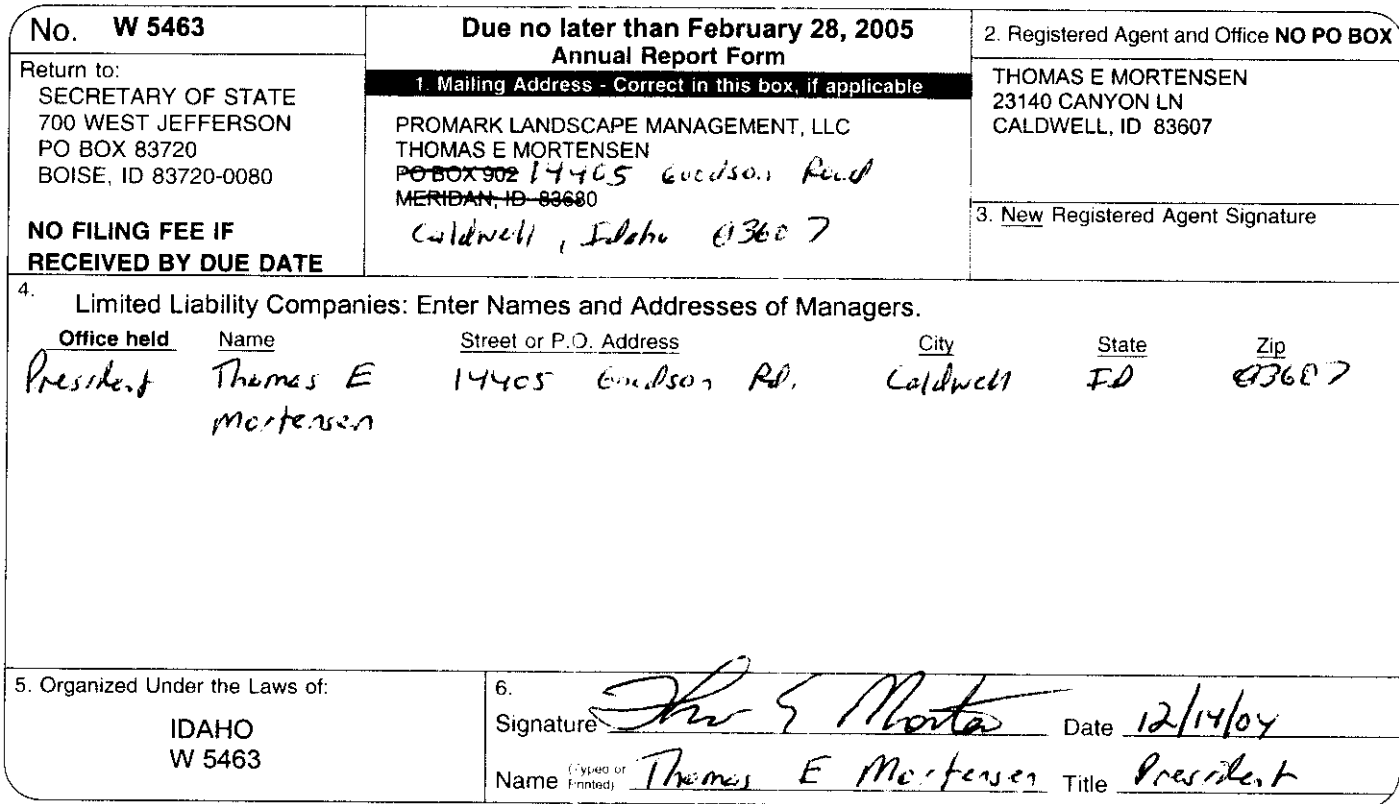 No. W 5463
Return to:
SECRETARY OF STATE
700 WEST JEFFERSON
PO BOX 83720
BOISE, ID 83720-0080
NO FILING FEE IF
RECEIVED BY DUE DATE
Due no later than February 28, 2005
Annual Report Form
1. Mailing Address - Correct in this box, if applicable
PROMARK LANDSCAPE MANAGEMENT, LLC
THOMAS E MORTENSEN
PO BOX 902 14405 Goodson Road
MERIDAN, ID 83680
Caldwell, Idaho 83607
2. Registered Agent and Office NO PO BOX
THOMAS E MORTENSEN
23140 CANYON LN
CALDWELL, ID 83607
3. New Registered Agent Signature
4. Limited Liability Companies: Enter Names and Addresses of Managers.
Office held Name Street or P.O. Address City State Zip
President Thomas E 14405 Goodson Rd. Caldwell ID 83607
Mortensen
5. Organized Under the Laws of:
IDAHO
W 5463
6.
Signature Date 12/14/04
Name (Typed or Printed) Thomas E Mortensen Title President